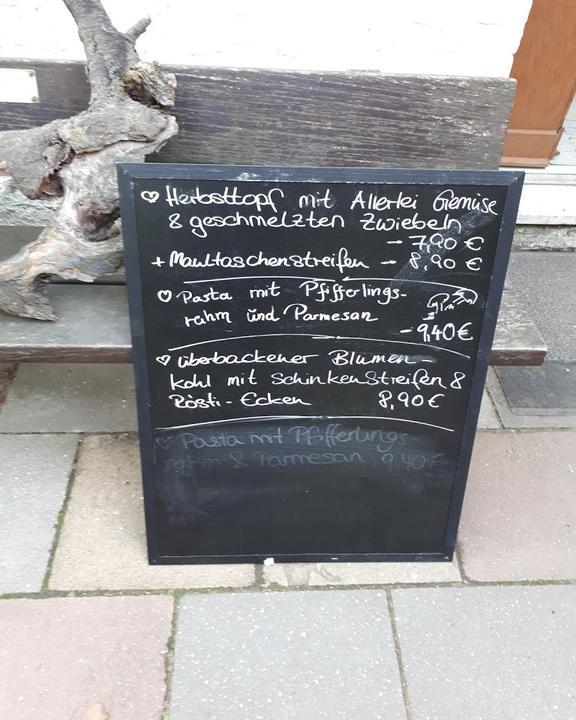 ♡ Herbsttopf mit Allerlei Gemüse
& geschmelzten Zwiebeln
- 7,90 €
+ Maultaschenstreifen - 8,90 €
♡ Pasta mit Pfifferlings-
rahm und Parmesan
- 9,40 €
♡ überbackener Blumen-
kohl mit Schinkenstreifen &
Rösti-Ecken 8,90 €
♡ Pasta mit Pfifferlings-
rahm & Parmesan 9,40 €